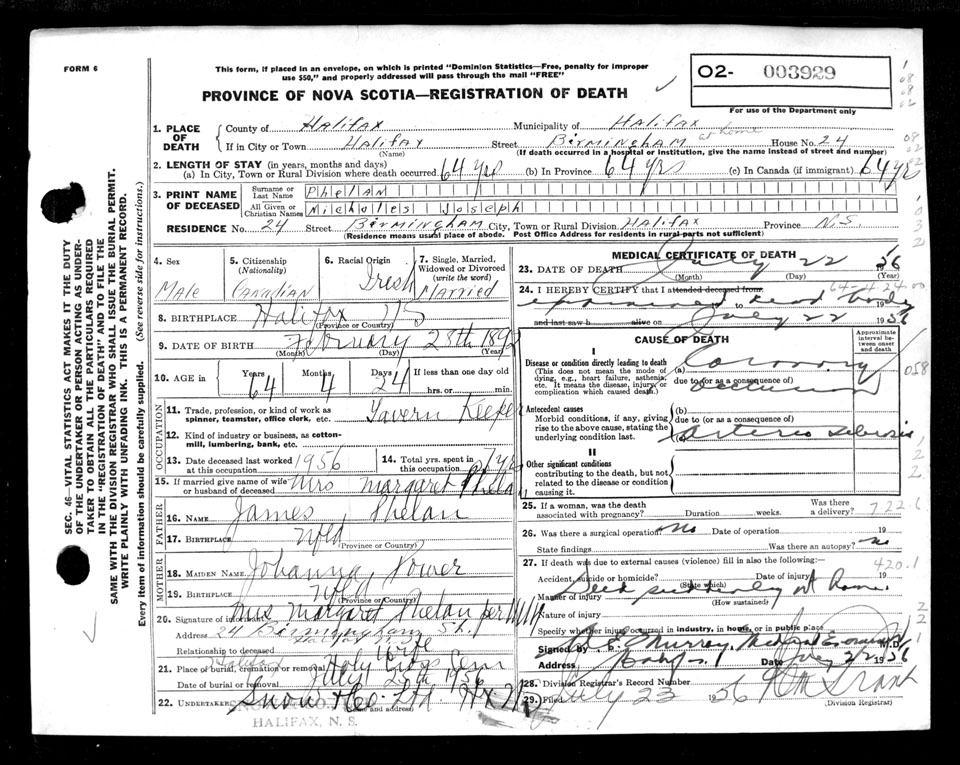 FORM 6
This form, if placed in an envelope, on which is printed "Dominion Statistics—Free, penalty for improper
use $50," and properly addressed will pass through the mail "FREE"
O2- 003929
For use of the Department only
PROVINCE OF NOVA SCOTIA—REGISTRATION OF DEATH
SEC. 46—VITAL STATISTICS ACT MAKES IT THE DUTY
OF THE UNDERTAKER OR PERSON ACTING AS UNDER-
TAKER TO OBTAIN ALL THE PARTICULARS REQUIRED
IN THE "REGISTRATION OF DEATH" AND TO FILE THE
SAME WITH THE DIVISION REGISTRAR WHO SHALL ISSUE THE BURIAL PERMIT.
WRITE PLAINLY WITH UNFADING INK. THIS IS A PERMANENT RECORD.
Every item of information should be carefully supplied. (See reverse side for instructions.)
1. PLACE OF DEATH County of Halifax Municipality of Halifax
If in City or Town Halifax (Name) Street Birmingham at home House No. 24
(If death occurred in a hospital or institution, give the name instead of street and number)
2. LENGTH OF STAY (in years, months and days)
(a) In City, Town or Rural Division where death occurred 64 yrs (b) In Province 64 yrs (c) In Canada (if immigrant) 64 yr
3. PRINT NAME OF DECEASED Surname or Last Name Phelan
All Given or Christian Names Micholes Joseph
RESIDENCE No. 24 Street Birmingham City, Town or Rural Division Halifax Province N.S.
(Residence means usual place of abode. Post Office Address for residents in rural parts not sufficient)
4. Sex Male
5. Citizenship (Nationality) Canadian
6. Racial Origin Irish
7. Single, Married, Widowed or Divorced (write the word) Married
8. BIRTHPLACE Halifax NS
(Province or Country)
9. DATE OF BIRTH February 28th 1892
(Month) (Day) (Year)
10. AGE in Years 64 Months 4 Days 24 If less than one day old
hrs. or min.
OCCUPATION
11. Trade, profession, or kind of work as spinner, teamster, office clerk, etc. Tavern Keeper
12. Kind of industry or business, as cotton-mill, lumbering, bank, etc.
13. Date deceased last worked at this occupation 1956
14. Total yrs. spent in this occupation
15. If married give name of wife or husband of deceased Mrs Margaret Phelan
FATHER
16. NAME James Phelan
17. BIRTHPLACE Nfld
(Province or Country)
MOTHER
18. MAIDEN NAME Johanna Power
19. BIRTHPLACE Nfld
(Province or Country)
20. Signature of informant Mrs Margaret Phelan per
Address 24 Birmingham St.
Halifax
Relationship to deceased Wife
21. Place of burial, cremation or removal Halifax Holy Cross
Date of burial or removal July 1956
22. UNDERTAKER Snow & Co Ltd Hx NS
(Name and address)
HALIFAX, N. S.
MEDICAL CERTIFICATE OF DEATH
23. DATE OF DEATH July 22 1956
(Month) (Day) (Year)
24. I HEREBY CERTIFY that I attended deceased from
to dead body 19
and last saw h alive on July 22 1956
CAUSE OF DEATH
Approximate interval between onset and death
I
Disease or condition directly leading to death
(This does not mean the mode of dying, e.g., heart failure, asthenia, etc. It means the disease, injury, or complication which caused death.)
(a) Coronary
due to (or as a consequence of)
Antecedent causes
Morbid conditions, if any, giving rise to the above cause, stating the underlying condition last.
(b)
due to (or as a consequence of)
Arterio sclerosis
II
Other significant conditions
contributing to the death, but not related to the disease or condition causing it.
25. If a woman, was the death associated with pregnancy? Duration weeks. Was there a delivery?
26. Was there a surgical operation? No Date of operation 19
State findings Was there an autopsy? No
27. If death was due to external causes (violence) fill in also the following: 420.1
Accident, suicide or homicide? (State which) Date of injury 19
Manner of injury Died suddenly at home.
(How sustained)
Nature of injury
Specify whether injury occurred in industry, in home, or in public place
Signed by Murray Medical Examiner M.D.
Address Date July 22 1956
28. Division Registrar's Record Number
29. Filed July 23 1956
(Division Registrar)